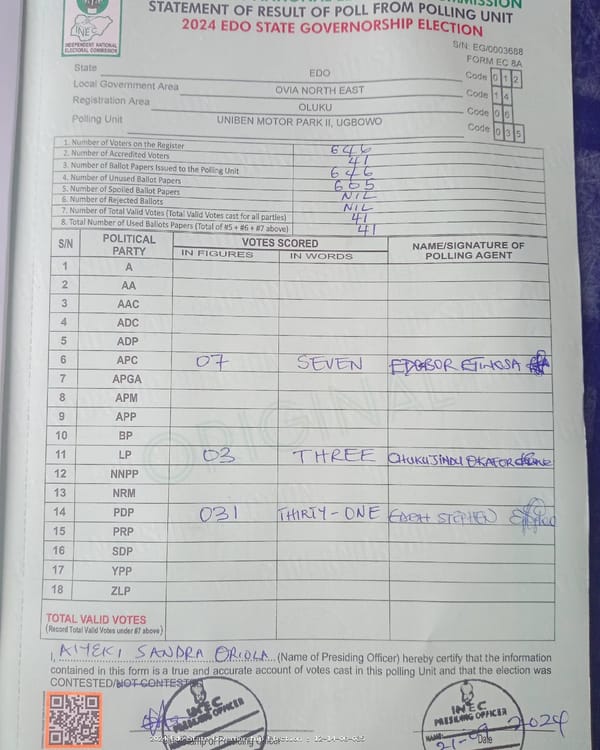 STATEMENT OF RESULT OF POLL FROM POLLING UNIT
2024 EDO STATE GOVERNORSHIP ELECTION
INEC
INDEPENDENT NATIONAL
ELECTORAL COMMISSION
S/N: EG/0003688
FORM EC 8A
State EDO Code 0 1 2
Local Government Area OVIA NORTH EAST Code 1 4
Registration Area OLUKU Code 0 6
Polling Unit UNIBEN MOTOR PARK II, UGBOWO Code 0 3 5
1. Number of Voters on the Register 646
2. Number of Accredited Voters 41
3. Number of Ballot Papers Issued to the Polling Unit 646
4. Number of Unused Ballot Papers 605
5. Number of Spoiled Ballot Papers NIL
6. Number of Rejected Ballots NIL
7. Number of Total Valid Votes (Total Valid Votes cast for all parties) 41
8. Total Number of Used Ballots Papers (Total of #5 + #6 + #7 above) 41
S/N POLITICAL PARTY VOTES SCORED NAME/SIGNATURE OF POLLING AGENT
IN FIGURES IN WORDS
1 A
2 AA
3 AAC
4 ADC
5 ADP
6 APC 07 SEVEN EDOBOR ETINOSA
7 APGA
8 APM
9 APP
10 BP
11 LP 03 THREE OKAFOR
12 NNPP
13 NRM
14 PDP 031 THIRTY-ONE STEPHEN
15 PRP
16 SDP
17 YPP
18 ZLP
ORIGINAL
TOTAL VALID VOTES
(Record Total Valid Votes under #7 above)
I, AIYEKI SANDRA ORIOLA (Name of Presiding Officer) hereby certify that the information
contained in this form is a true and accurate account of votes cast in this polling Unit and that the election was
CONTESTED/NOT CONTESTED
INEC
PRESIDING OFFICER
INEC
PRESIDING OFFICER
2024
Date